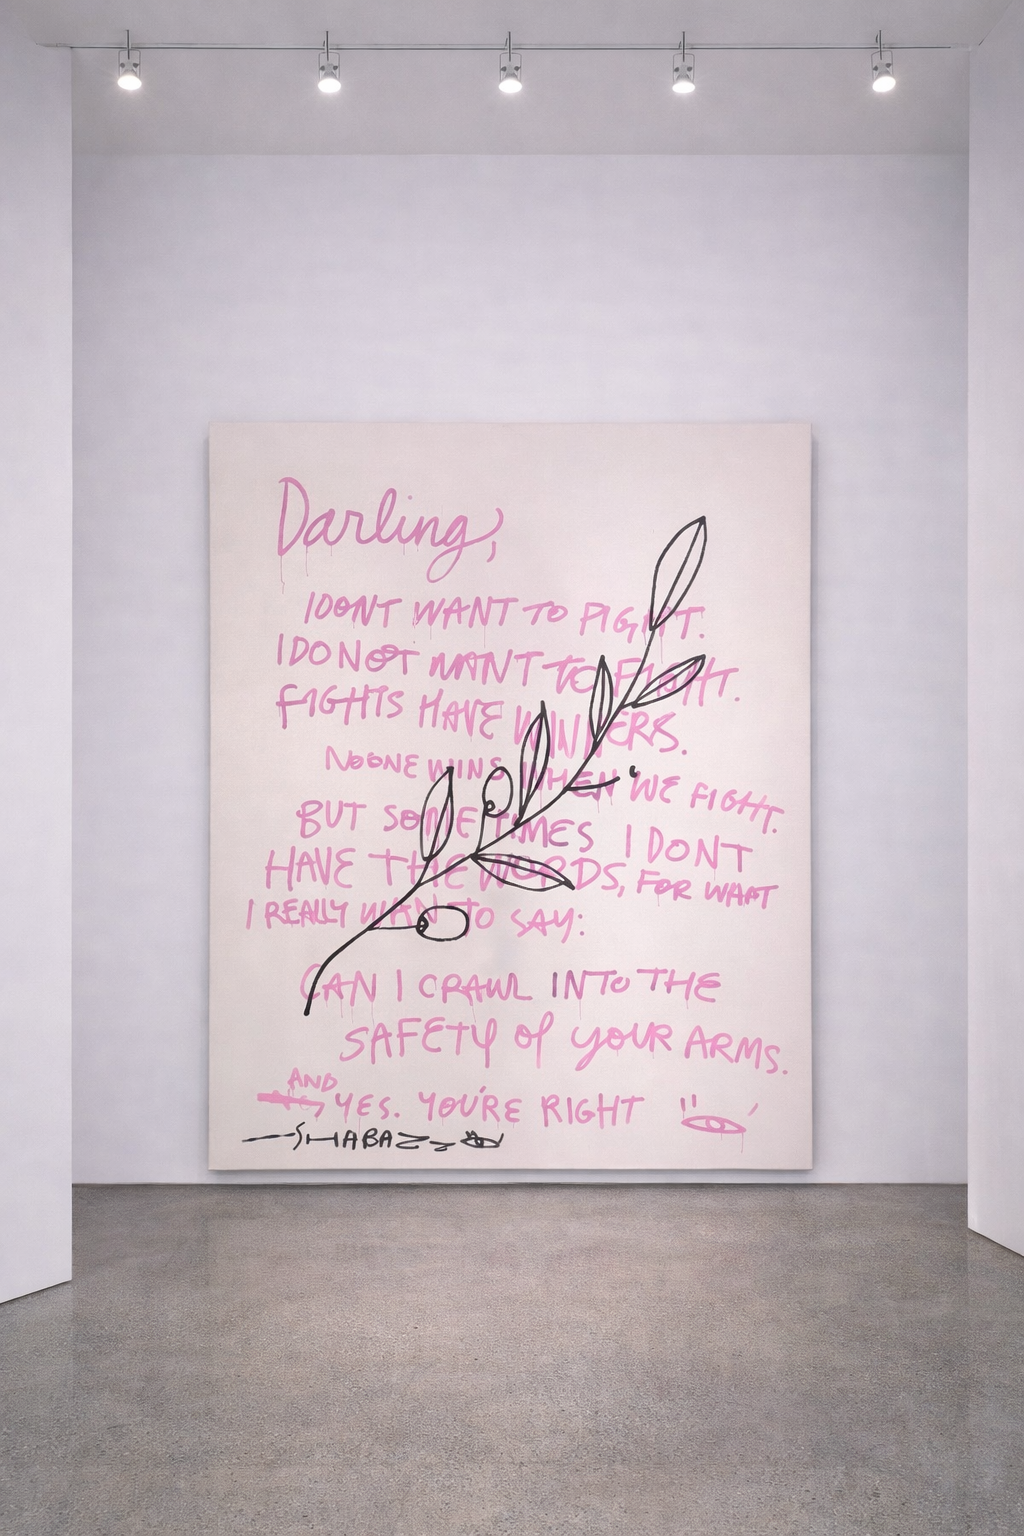 Darling,
I DONT WANT TO FIGHT.
I DO NOT WANT TO FIGHT.
FIGHTS HAVE WINNERS.
NO ONE WINS WHEN WE FIGHT.
BUT SOMETIMES I DONT
HAVE THE WORDS, FOR WHAT
I REALLY WANT TO SAY:
CAN I CRAWL INTO THE
SAFETY OF YOUR ARMS.
AND
YES. YOU'RE RIGHT
SHABAZZ